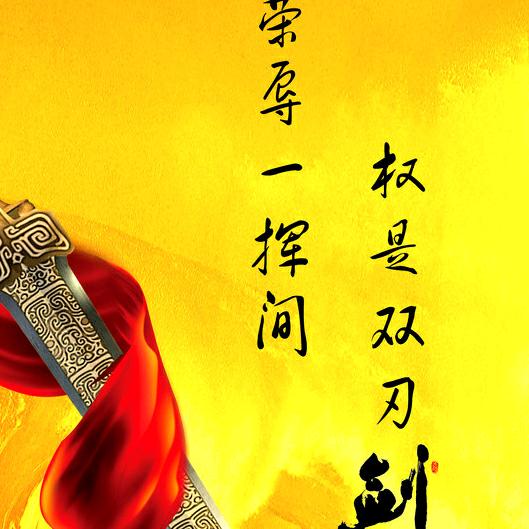 权是双刃剑
荣辱一挥间